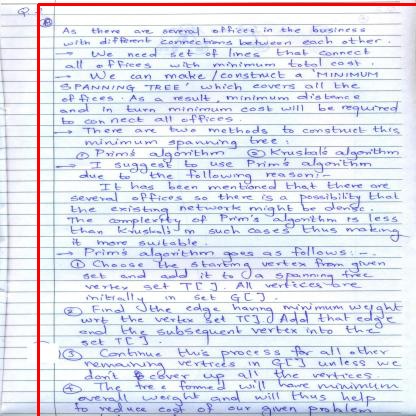 Q.
As there are several offices in the business
with different connections between each other.
→ We need set of lines that connect
all offices with minimum total cost.
→ We can make/construct a 'MINIMUM
SPANNING TREE' which covers all the
offices. As a result, minimum distance
and in turn minimum cost will be required
to connect all offices.
→ There are two methods to construct this
minimum spanning tree:
① Prim's algorithm ② Kruskal's algorithm
→ I suggest to use Prim's algorithm
due to the following reason:-
It has been mentioned that there are
several offices so there is a possibility that
the existing network might be dense.
The complexity of Prim's algorithm is less
than Kruskal's in such cases thus making
it more suitable.
→ Prim's algorithm goes as follows:-
① Choose the starting vertex from given
set and add it to a spanning tree
vertex set T[]. All vertices are
initially in set G[]
② Find the edge having minimum weight
wrt the vertex set T[]. Add that edge
and the subsequent vertex into the
set T[].
③ Continue this process for all other
remaining vertices in G[] unless we
don't cover up all the vertices
④ The tree formed will have minimum
overall weight and will thus help
to reduce cost of our given problem